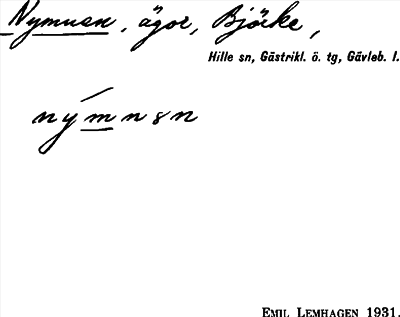 Nymuan, ägor, Björke,
Hille sn, Gästrikl. ö. tg, Gävleb. l.
nýmnsn
EMIL LEMHAGEN 1931.